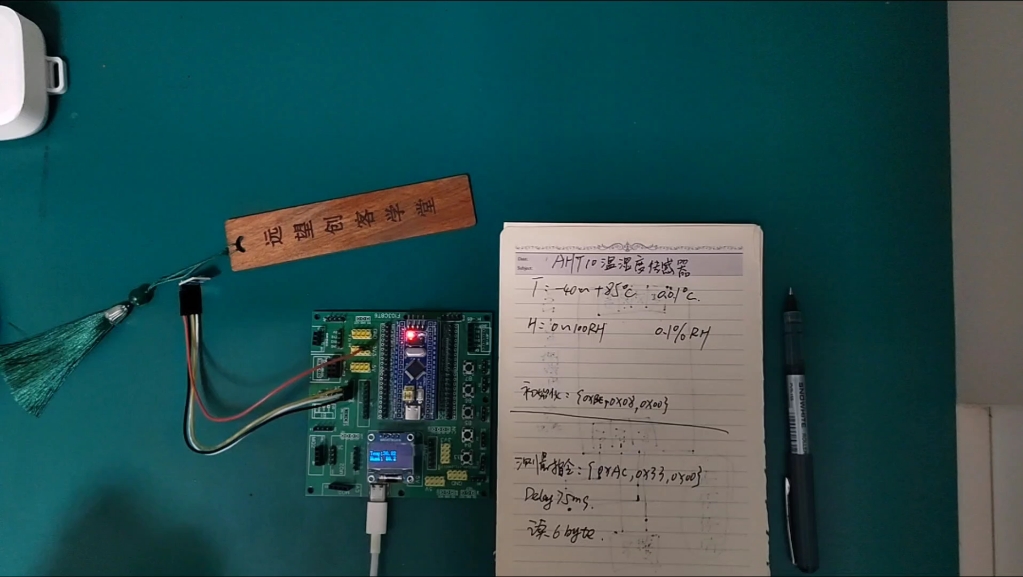 远望创客学堂
F103C8T6
Class:
Subject:
AHT10温湿度传感器
T: -40~+85℃ 0.01℃.
H: 0~100RH 0.1%RH
初始化: {0xBE, 0x08, 0x00}
测量指令: {0xAC, 0x33, 0x00}
Delay 75ms.
读 6 byte.
SNOWHITE